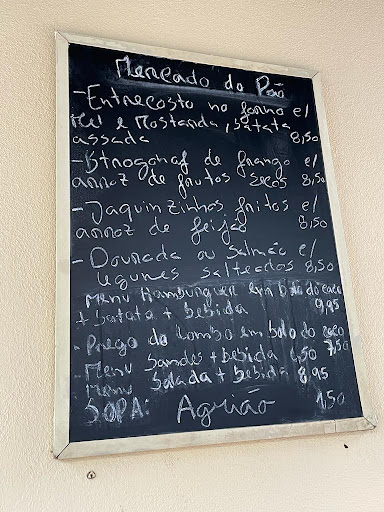 Mercado do Pão
- Entrecosto no forno c/
mel e Mostarda, batata
assada 8,50
- Strogonaf de frango c/
arroz de frutos secos 8,50
- Jaquinzinhos fritos c/
arroz de feijão 8,50
- Dourada ou salmão c/
legumes salteados 8,50
Menu Hamburguer em bolo do caco
+ batata + bebida 9,95
- Prego do Lombo em bolo do caco 7,50
- Menu Sandes + bebida 6,50
Menu Salada + bebida 8,95
SOPA: Agrião 1,50